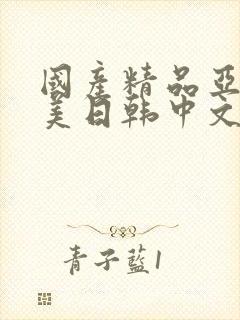 國產精品亞
美日韩中文
青子藍1